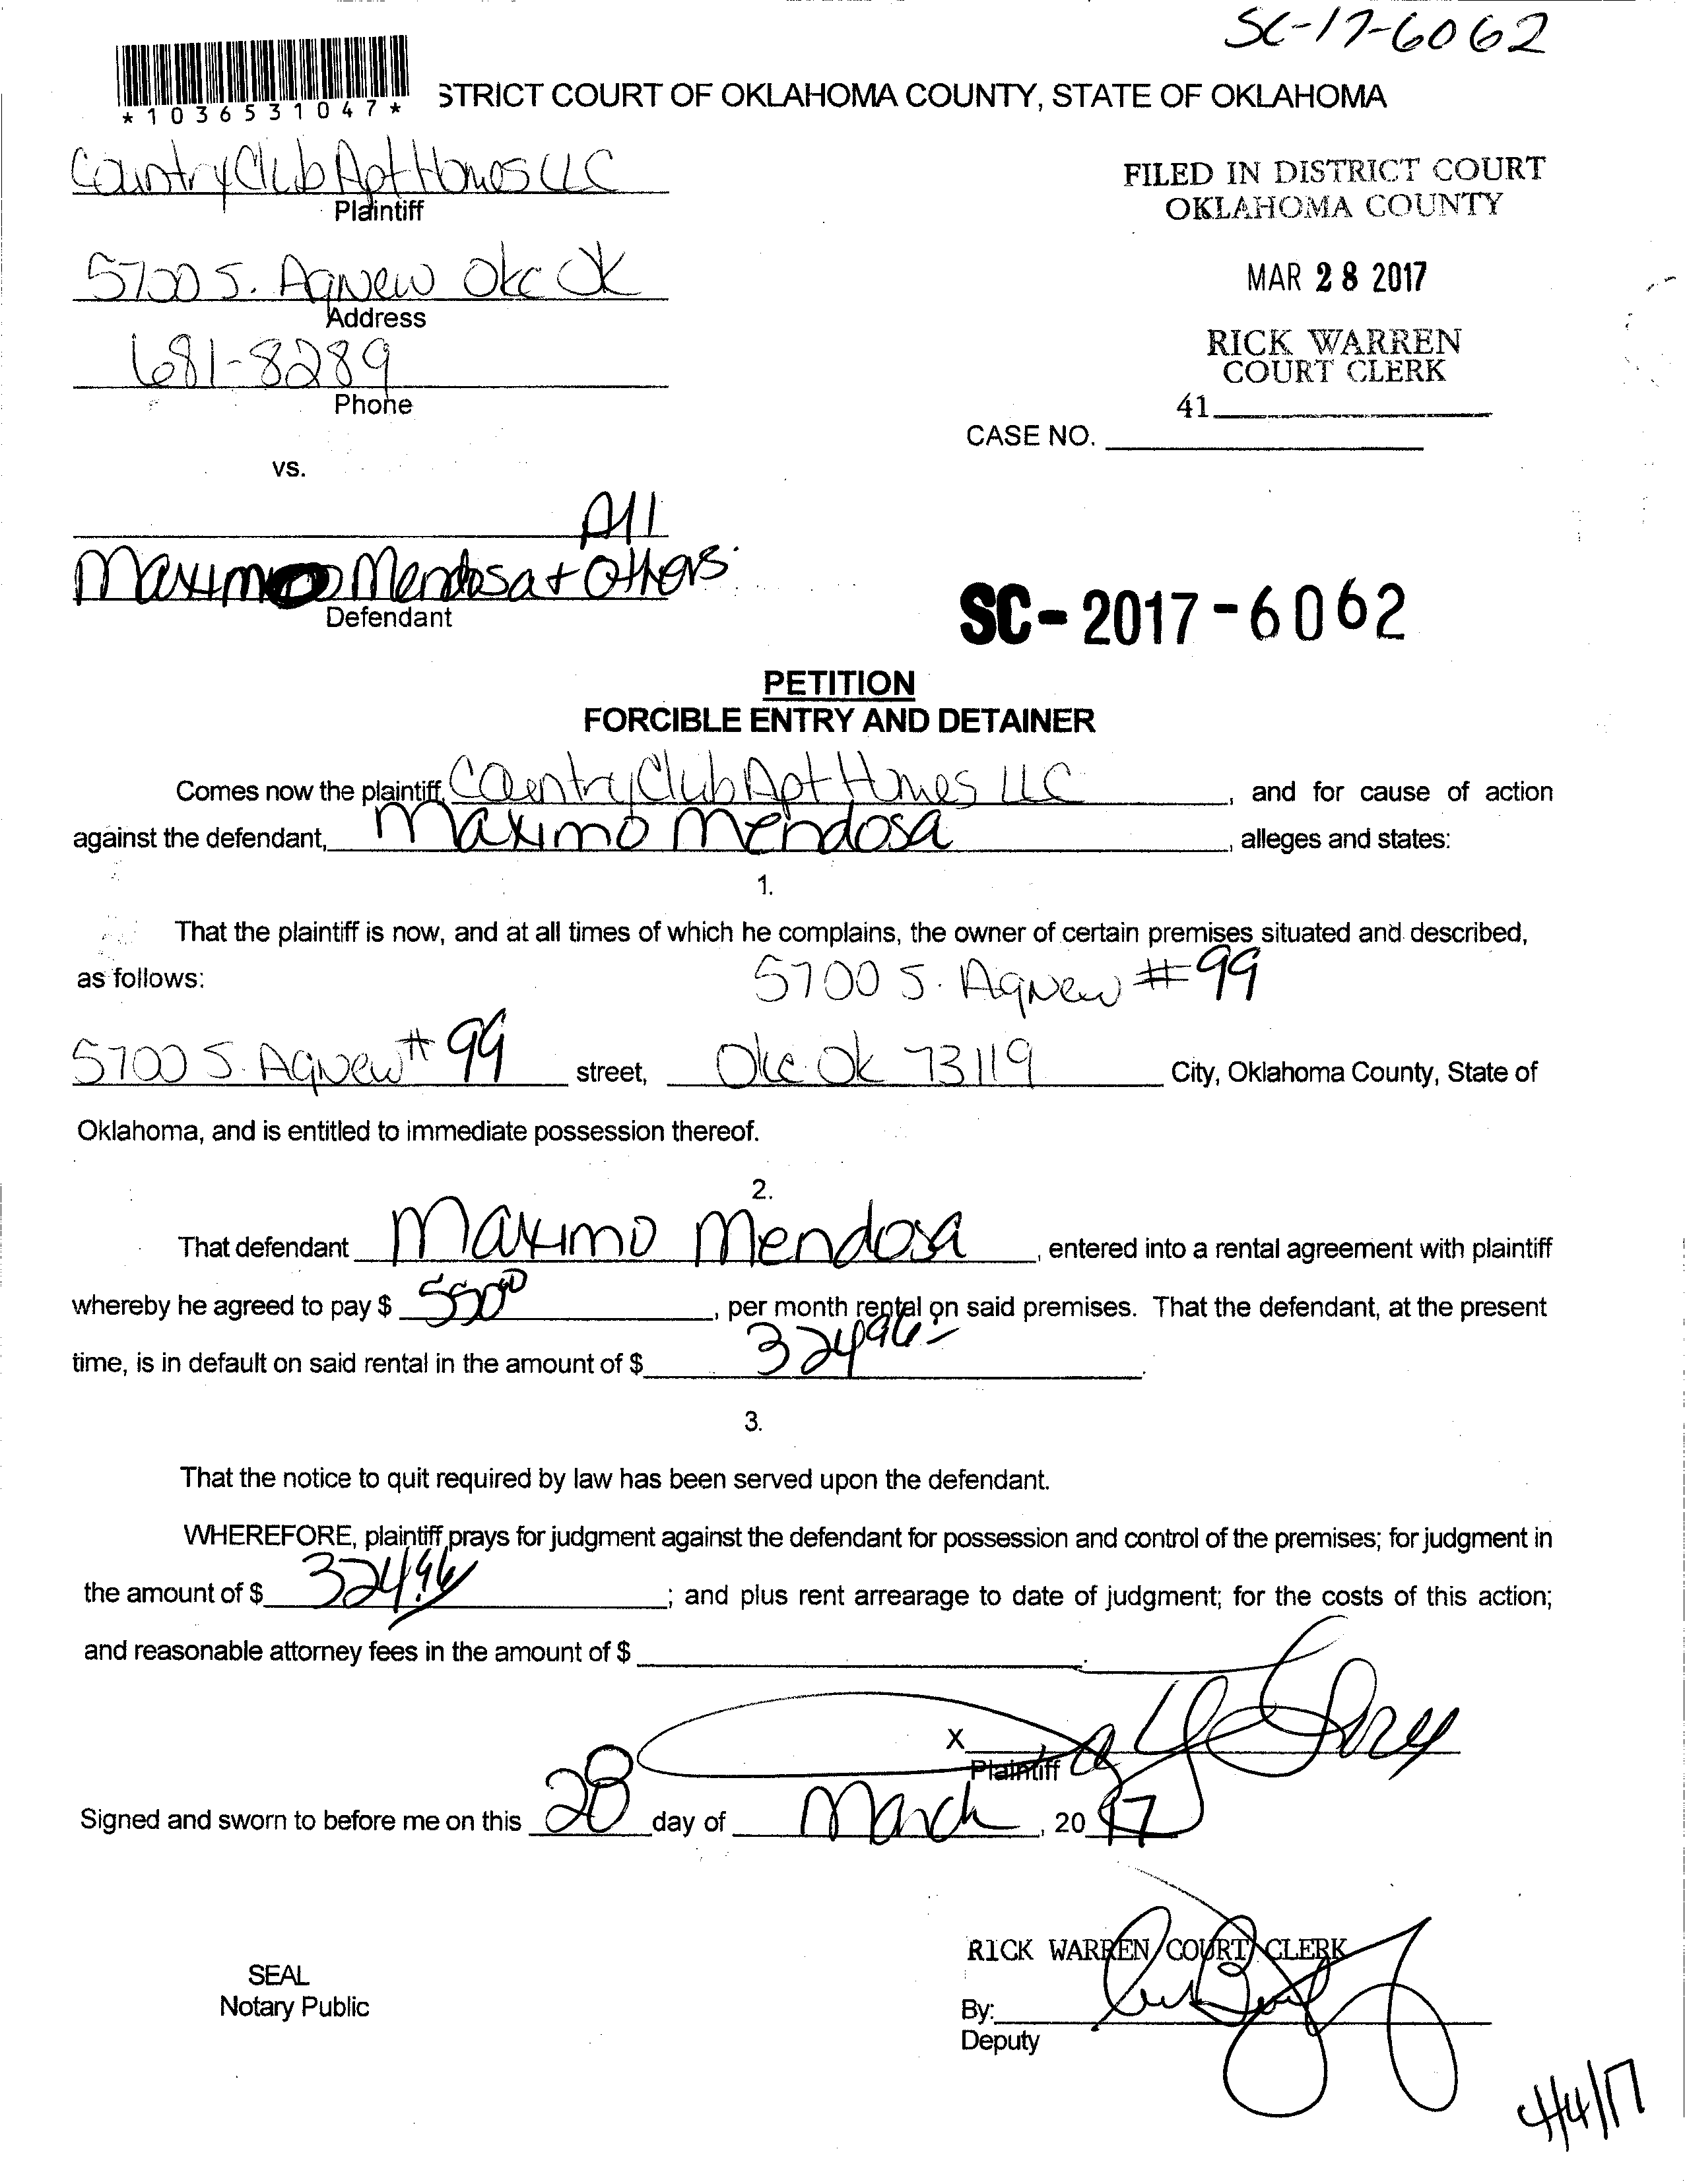 SC-17-6062
*1036531047*
STRICT COURT OF OKLAHOMA COUNTY, STATE OF OKLAHOMA
Country Club Apt Homes LLC
Plaintiff
FILED IN DISTRICT COURT
OKLAHOMA COUNTY
5700 S. Agnew Okc Ok
Address
MAR 28 2017
681-8289
Phone
RICK WARREN
COURT CLERK
41
CASE NO.
vs.
All
Maximo Mendosa + Others
Defendant
SC-2017-6062
PETITION
FORCIBLE ENTRY AND DETAINER
Comes now the plaintiff, Country Club Apt Homes LLC, and for cause of action
against the defendant, Maximo Mendosa, alleges and states:
1.
That the plaintiff is now, and at all times of which he complains, the owner of certain premises situated and described,
as follows: 5700 S. Agnew #99
5700 S. Agnew #99 street, Okc Ok 73119 City, Oklahoma County, State of
Oklahoma, and is entitled to immediate possession thereof.
2.
That defendant Maximo Mendosa, entered into a rental agreement with plaintiff
whereby he agreed to pay $ 550 00, per month rental on said premises. That the defendant, at the present
time, is in default on said rental in the amount of $ 324 96.
3.
That the notice to quit required by law has been served upon the defendant.
WHEREFORE, plaintiff prays for judgment against the defendant for possession and control of the premises; for judgment in
the amount of $ 324 96; and plus rent arrearage to date of judgment; for the costs of this action;
and reasonable attorney fees in the amount of $
X
Plaintiff
Signed and sworn to before me on this 28 day of March, 2017
RICK WARREN COURT CLERK
SEAL
Notary Public
By:
Deputy
4/4/17